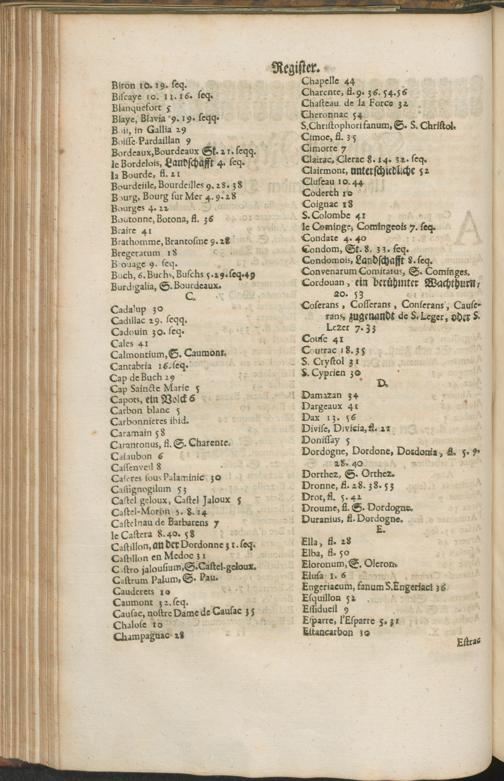 Register.
Biron 10. 19. seq.
Biscaye 10. 11. 16. seq.
Blanquefort 5
Blaye, Blavia 9. 19. seqq.
Boii, in Gallia 29
Boisse-Pardaillan 9
Bordeaux, Bourdeaux St. 21. seqq.
le Bordelois, Landschafft 4. seq.
la Bourde, fl. 21
Bourdeille, Bourdeilles 9. 28. 38
Bourg, Bourg sur Mer 4. 9. 28
Bourges 4. 22
Boutonne, Botona, fl. 36
Braire 41
Brathomme, Brantosme 9. 28
Bregeratum 18
Brouage 9. seq.
Buch, 6. Buchs, Buschs 5. 29. seq. 49
Burdigalia, S. Bourdeaux.
C.
Cadalup 30
Cadillac 29. seqq.
Cadouin 30. seq.
Cales 41
Calmontium, S. Caumont.
Cantabria 16. seq.
Cap de Buch 29
Cap Saincte Marie 5
Capots, ein Volck 6
Carbon blanc 5
Carbonnieres ibid.
Caramain 58
Carantonus, fl. S. Charente.
Casaubon 6
Cassenveil 8
Caseres sous Palaminic 30
Cassignogilum 53
Castel geloux, Castel Jaloux 5
Castel-Moron 5. 8. 14
Castelnau de Barbarens 7
le Castera 8. 40. 58
Castillon, an der Dordonne 31. seq.
Castillon en Medoc 31
Castro jalousium, S. Castel-geloux.
Castrum Palum, S. Pau.
Cauderets 10
Caumont 32. seq.
Causac, nostre Dame de Causac 35
Chalose 10
Champagnac 28
Chapelle 44
Charente, fl. 9. 36. 54. 56
Chasteau de la Force 32
Cheronnac 54
S. Christophori fanum, S. S. Christol.
Cimoe, fl. 35
Cimorre 7
Clairac, Clerac 8. 14. 32. seq.
Clairmont, unterschiedliche 52
Cluseau 10. 44
Codereth 10
Coignac 18
S. Colombe 41
le Cominge, Comingeois 7. seq.
Condate 4. 40
Condom, St. 8. 33. seq.
Condomois, Landschafft 8. seq.
Convenarum Comitatus, S. Cominges.
Cordouan, ein berühmter Wachthurn,
20. 53
Coserans, Cosserans, Conserans, Cause-
rans, zugenandt de S. Leger, oder S.
Lezer 7. 33
Couse 41
Coutrac 18. 35
S. Crystol 31
S. Cyprien 30
D.
Damazan 34
Dargeaux 41
Dax 13. 56
Divise, Divicia, fl. 21
Donissay 5
Dordogne, Dordone, Dordonia, fl. 5. 9.
28. 40
Dorthez, S. Orthez.
Dronne, fl. 28. 38. 53
Drot, fl. 5. 42
Droume, fl. S. Dordogne.
Duranius, fl. Dordogne.
E.
Ella, fl. 28
Elba, fl. 50
Eloronum, S. Oleron.
Elusa 1. 6
Engeriacum, fanum S. Engeriaci 36
Esquillon 52
Essidueil 9
Esparre, l'Esparre 5. 31
Estancarbon 30
Estrac